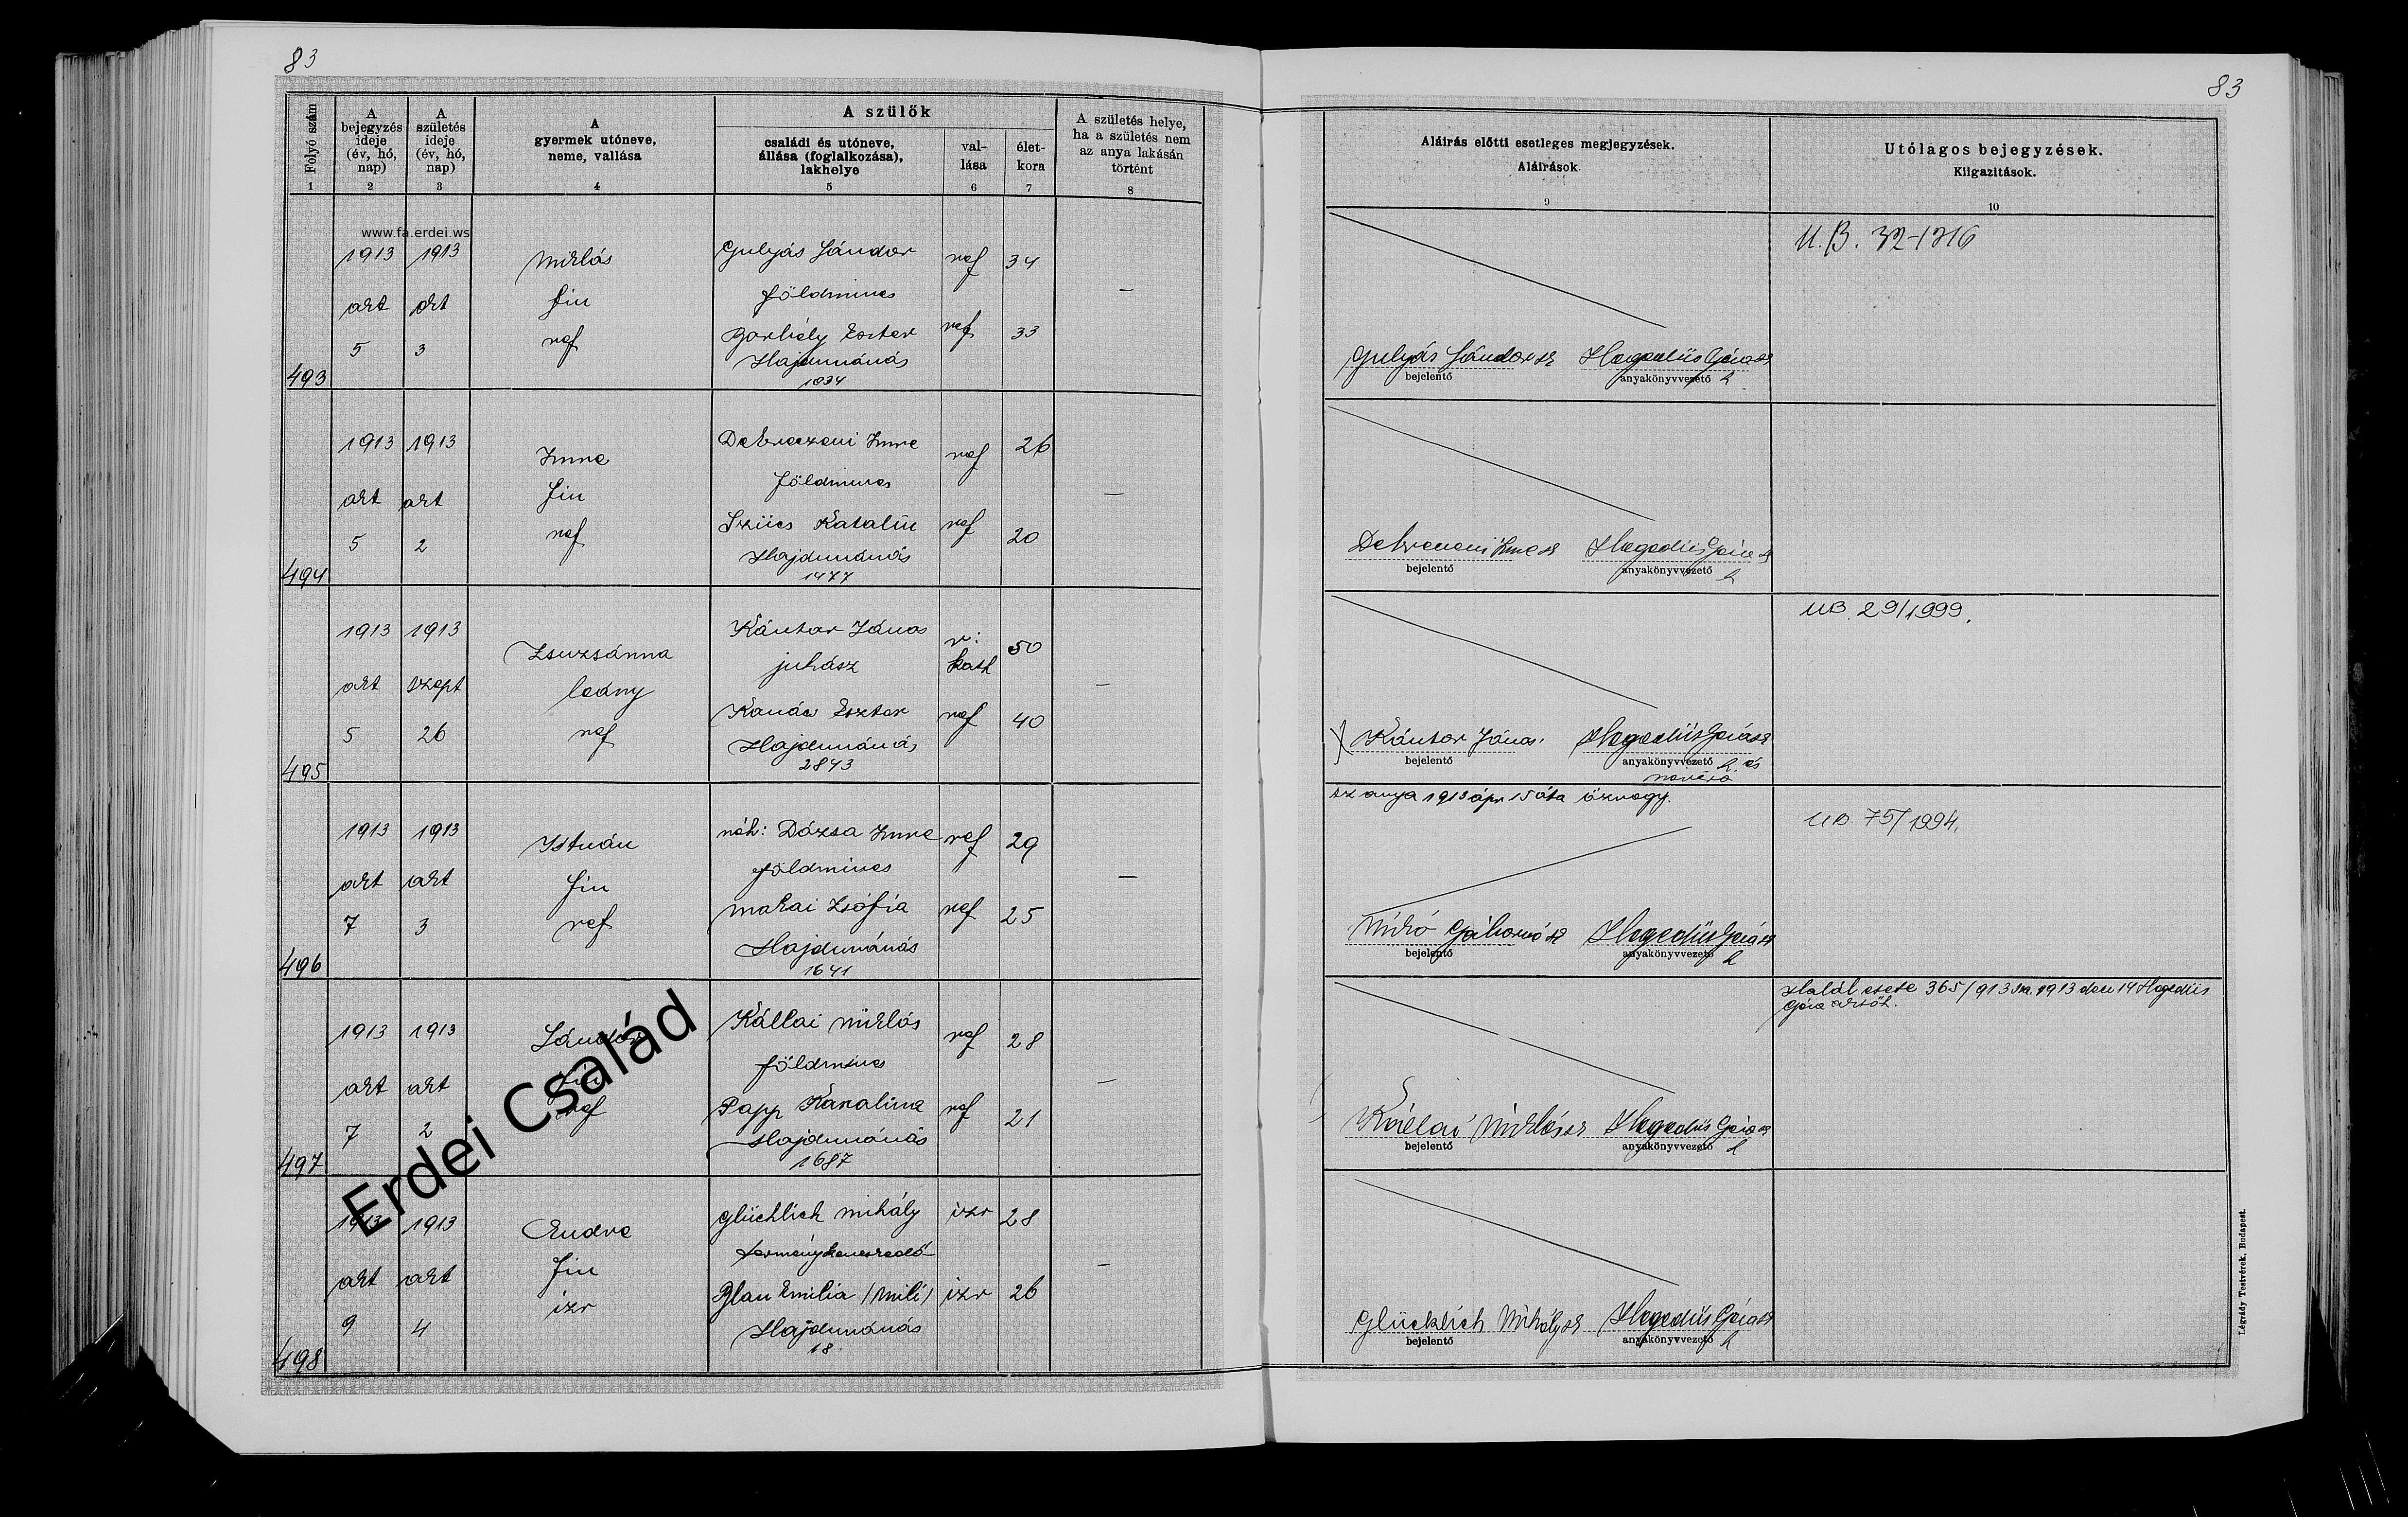 83
83
Folyó szám
A bejegyzés ideje (év, hó, nap)
A születés ideje (év, hó, nap)
A gyermek utóneve, neme, vallása
A szülők
családi és utóneve, állása (foglalkozása), lakhelye
val-lása
élet-kora
A születés helye, ha a születés nem az anya lakásán történt
1 2 3 4 5 6 7 8
Aláírás előtti esetleges megjegyzések.
Aláírások.
9
Utólagos bejegyzések.
Kiigazítások.
10
www.fa.erdei.ws
1913 1913 Miklós Gulyás Sándor ref 34
okt okt fiu földmives —
5 3 ref Eszter ref 33
Hajdunánás
493 1034
Gulyás Sándor sk Hegedüs Géza sk
bejelentő anyakönyvvezető h
1913 1913 Imre Debreczeni Imre ref 26
okt okt fiu földmives —
5 2 ref Szücs Katalin ref 20
Hajdunánás
494 1477
Debreceni Imre sk Hegedüs Géza sk
bejelentő anyakönyvvezető h
1913 1913 Zsuzsánna Kántor János r: kath 50
okt szept leány juhász —
5 26 ref Kanács Eszter ref 40
Hajdunánás
495 2843
UB. 29/1999.
Kántor János. Hegedüs Géza sk
bejelentő anyakönyvvezető h. és
névíró
1913 1913 István néh: Dózsa Imre ref 29
okt okt fiu földmives —
7 3 ref Makai Zsófia ref 25
Hajdunánás
496 1641
az anya 1913 ápr 15 óta özvegy.
UB. 75/1994.
Mikó Gáborné sk Hegedüs Géza sk
bejelentő anyakönyvvezető h
1913 1913 Sándor Kállai Miklós ref 28
okt okt fiu földmives —
7 2 ref Papp Karalina ref 21
Hajdunánás
497 1687
Halál esete 365/913 sz. 1913 dec 14 Hegedüs
Géza
Kállai Miklós sk Hegedüs Géza sk
bejelentő anyakönyvvezető h
Erdei Család
1913 1913 Endre Glüchlich Mihály izr 28
okt okt fiu terménykereskedő —
9 4 izr Blau Emilia (Mili) izr 26
Hajdunánás
498 18
Glücklich Mihály sk Hegedüs Géza sk
bejelentő anyakönyvvezető h
Légrády Testvérek, Budapest.